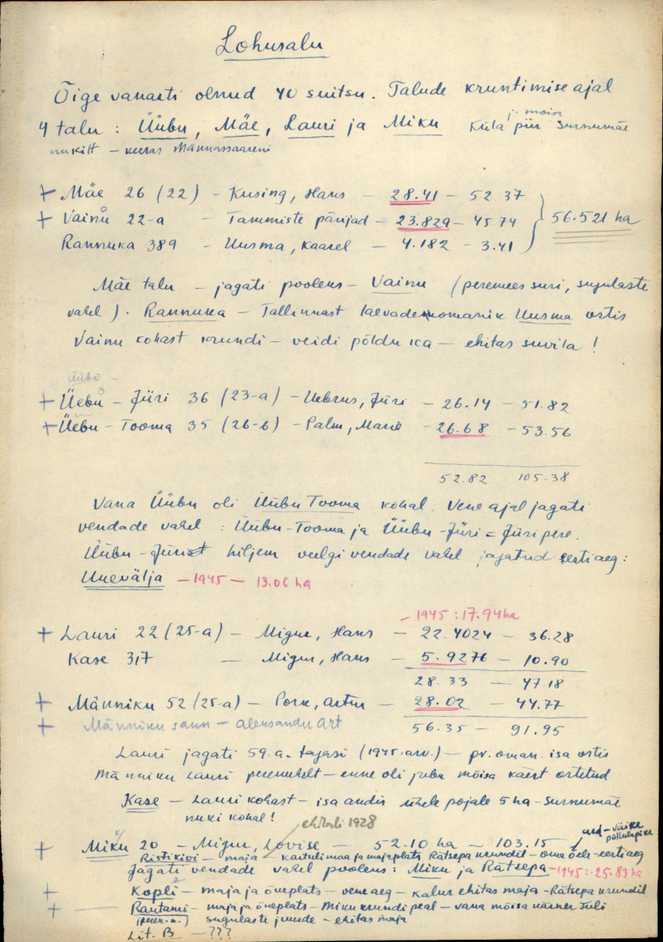 Lohusalu
Õige vanasti olnud 40 suitsu. Talude kruntimise ajal
4 talu: Üübu, Mäe, Lauri ja Miku Küla piir Surnumäe
nukilt – Männassaareni
+ Mäe 26 (22) – Kusing, Hans – 28.41 – 52 37
+ Vainu 22-a – Tammiste pärijad – 23.829 – 45 74 } 56.521 ha
Rannuka 389 – Uusma, Kaarel – 4.182 – 3.41
Mäe talu – jagati pooleks – Vainu (peremees suri, sugulaste
vahel). Rannuka – Tallinnast laevadeomanik Uusma ostis
Vainu kohast krundi – veidi põldu ka – ehitas suvila!
+ Üebu – Jüri 36 (23-a) – Uebrus, Jüri – 26.14 – 51.82
+ Üebu – Tooma 35 (26-b) – Palm, – 26.68 – 53.56
52.82 105.38
Vana Üübu oli Üübu Tooma kohal. Vene ajal jagati
vendade vahel: Üübu-Tooma ja Üübu-Jüri = Jüripere.
Üübu-Jürist hiljem veelgi vendade vahel jagatud eesti aeg:
Uuevälja – 1945 – 13.06 ha
– 1945: 17.94 ha
+ Lauri 22 (25-a) – Migur, Hans – 22.4024 – 36.28
Kase 317 – Migur, Hans – 5.9276 – 10.90
28.33 – 47 18
+ Männiku 52 (25-a) – Pork, Artur – 28.02 – 44.77
+ Männiku saun – Aleksander Art 56.35 – 91.95
Lauri jagati 59. a. tagasi (1945. arv.) – pr. oman. isa ostis
Männiku Lauri peremehelt – enne oli juba mõisa käest ostetud
Kase – Lauri kohast – isa andis ühele pojale 5 ha – Surnumäe
nuki kohal!
ehitati 1928
+ Miku 20 – Migur, Loviise – 52.10 ha – 103.15
Ristikivi – maja – maa ja majaplats Rätsepa krundil – oma õele – eesti aeg
Jagati vendade vahel pooleks: Miku ja Rätsepa – 1945: 25.83 ha
+ Kopli – maja ja õueplats – vene aeg – ehitas maja – Rätsepa krundil
+ Rautami – maja ja õueplats – Miku krundi peal – vana mõisa
sugulaste juurde – ehitas maja
Lit. B – ???